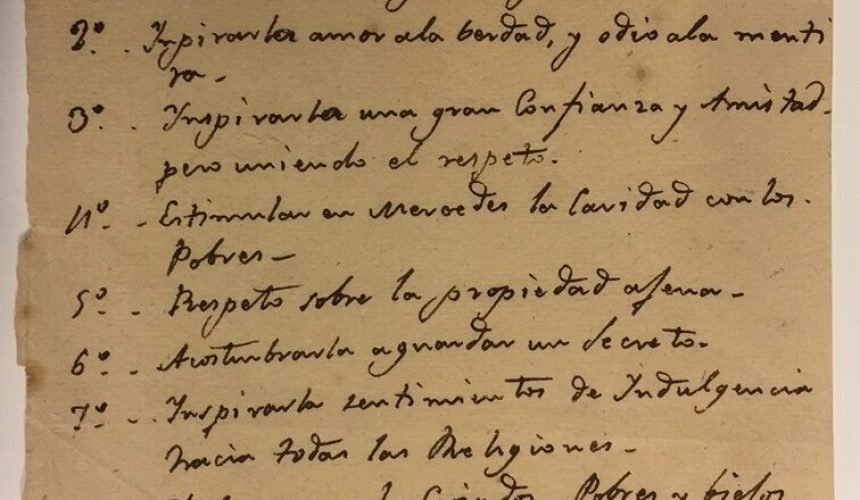 2º. Inpirarla amor ala berdad, y odio ala menti
ra-
3º. Inspirarla una gran Confianza y Amistad-
pero uniendo el respeto.
4º. - Estimular en Mercedes la Caridad con los.
Pobres-
5º. - Respeto sobre la propiedad ajena-
6º. - Acostumbrarla a guardar un Secreto.
7º. - Inspirarla sentimientos de Indulgencia
hacia todas las Religiones-
Criados, Pobres y biejos